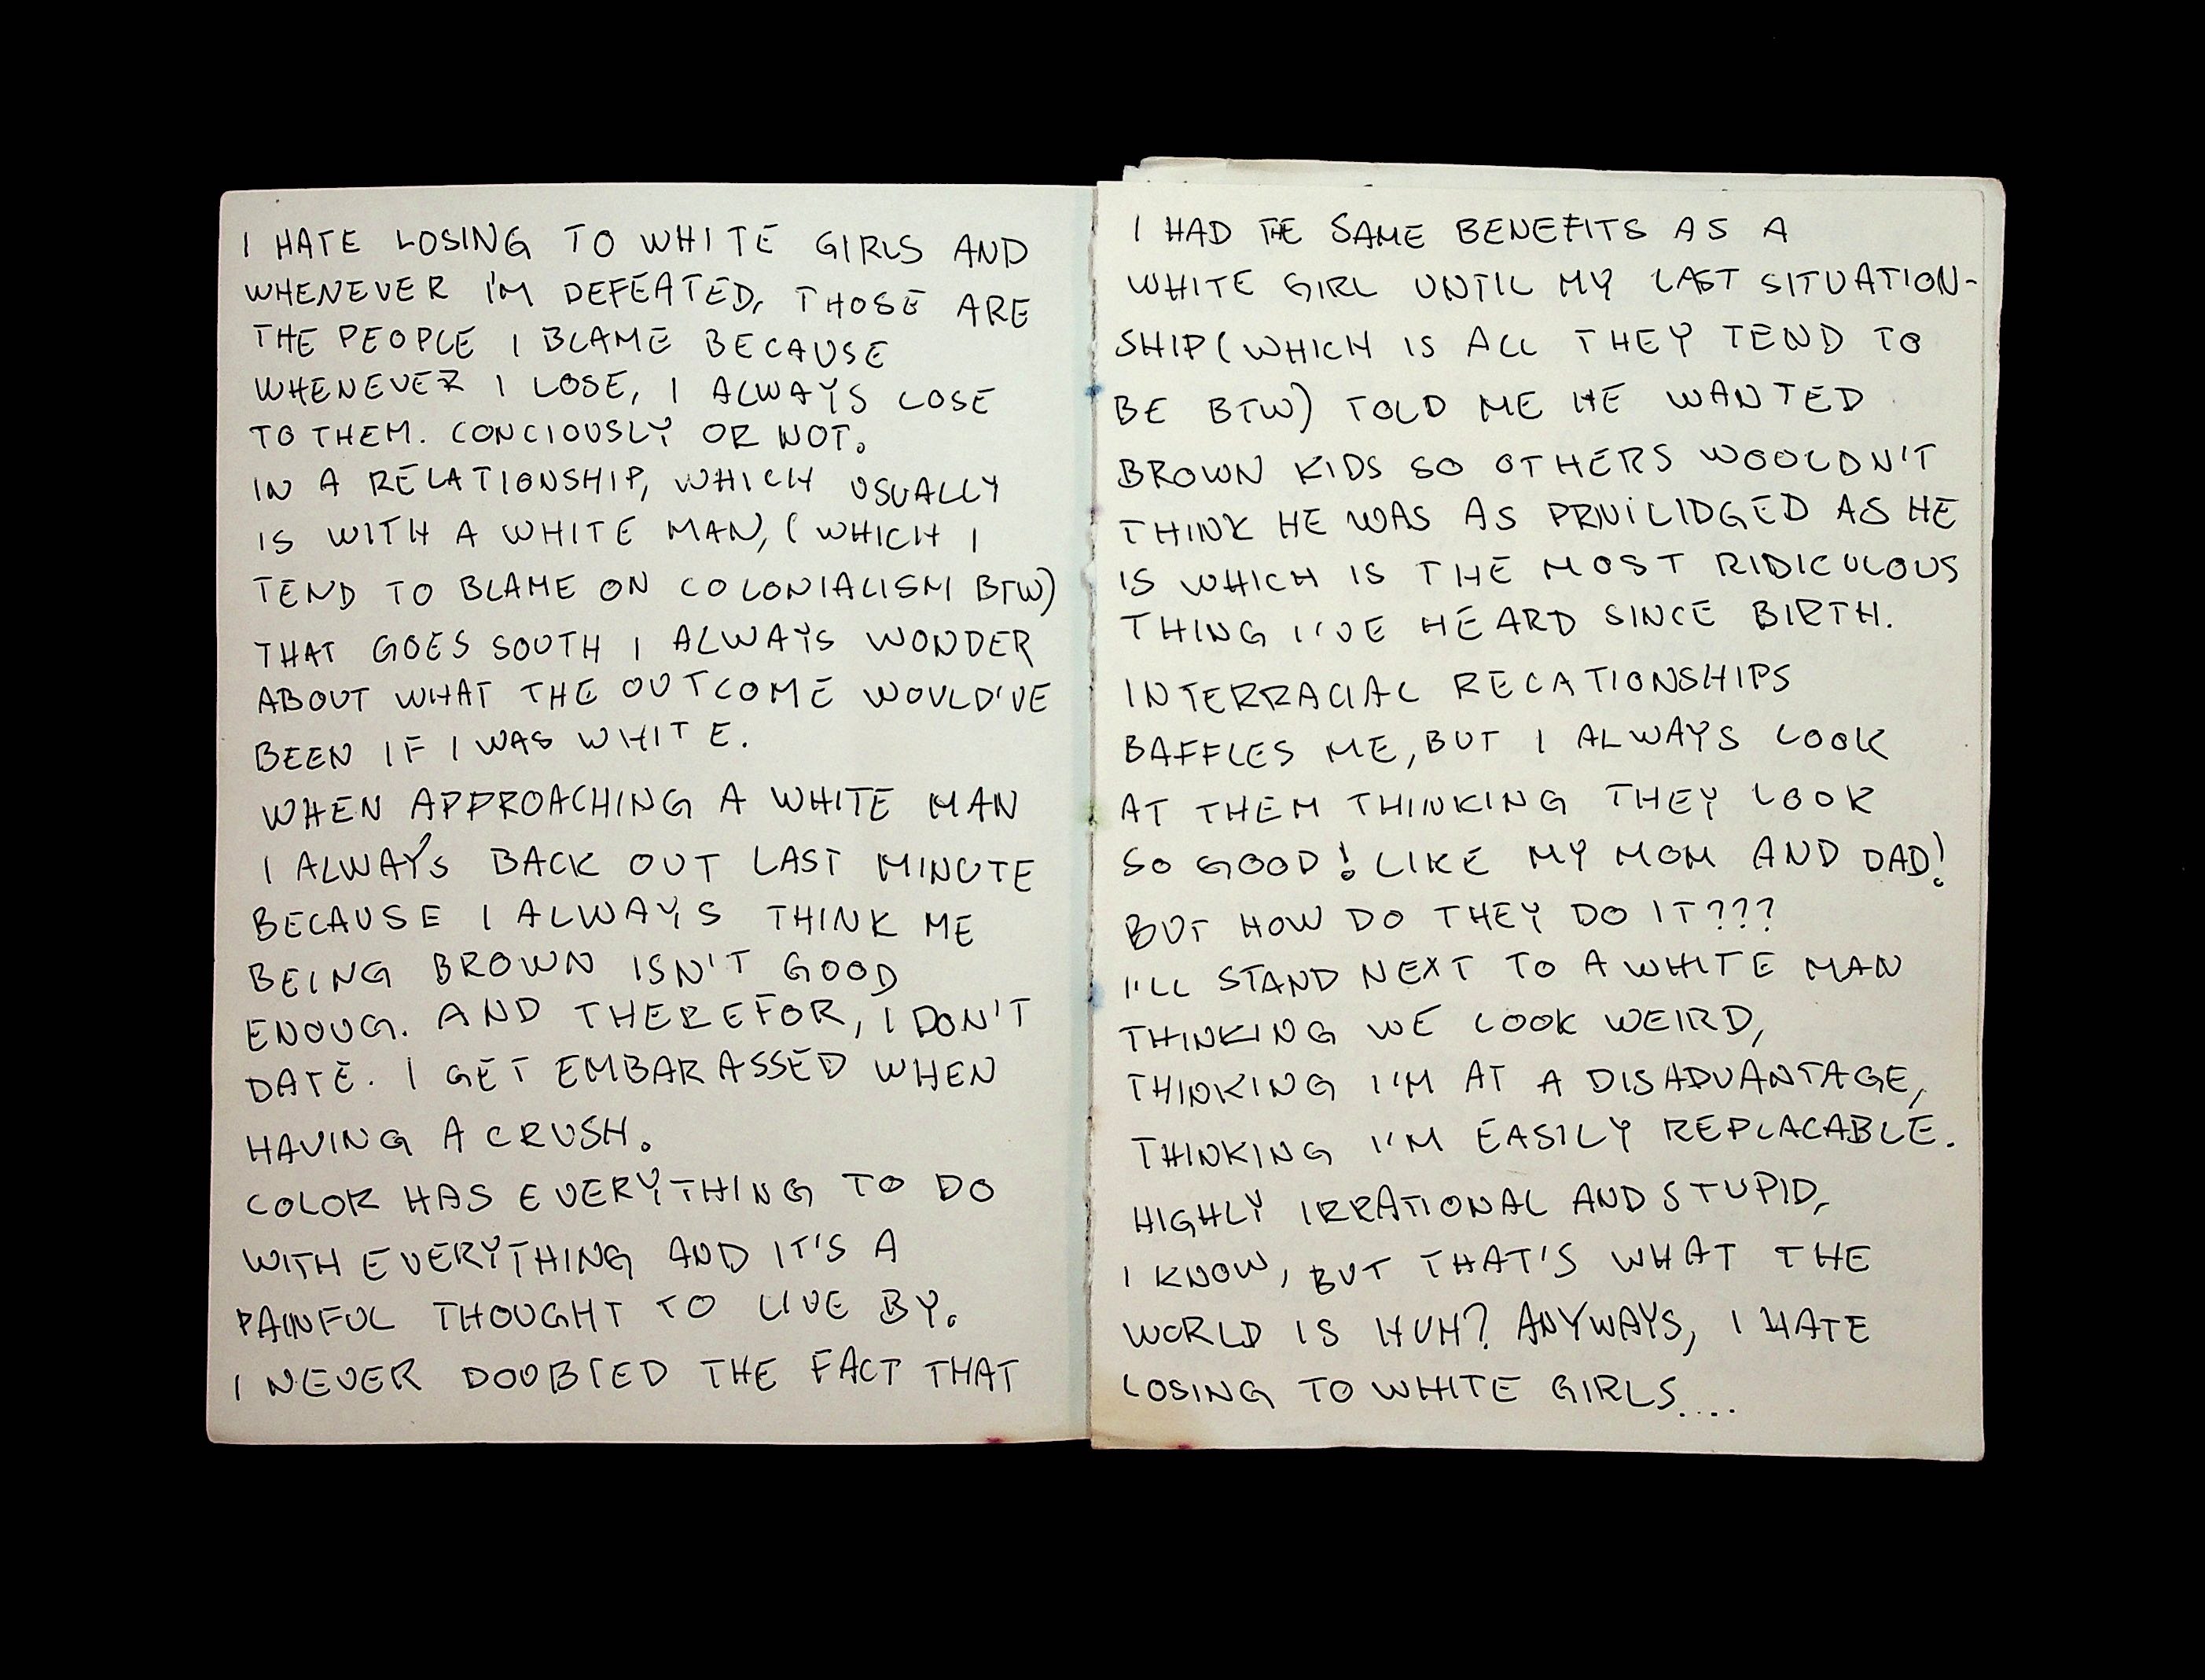 I HATE LOSING TO WHITE GIRLS AND
WHENEVER I'M DEFEATED, THOSE ARE
THE PEOPLE I BLAME BECAUSE
WHENEVER I LOSE, I ALWAYS LOSE
TO THEM. CONCIOUSLY OR NOT.
IN A RELATIONSHIP, WHICH USUALLY
IS WITH A WHITE MAN, (WHICH I
TEND TO BLAME ON COLONIALISM BTW)
THAT GOES SOUTH I ALWAYS WONDER
ABOUT WHAT THE OUTCOME WOULD'VE
BEEN IF I WAS WHITE.
WHEN APPROACHING A WHITE MAN
I ALWAYS BACK OUT LAST MINUTE
BECAUSE I ALWAYS THINK ME
BEING BROWN ISN'T GOOD
ENOUG. AND THEREFOR, I DON'T
DATE. I GET EMBARASSED WHEN
HAVING A CRUSH.
COLOR HAS EVERYTHING TO DO
WITH EVERYTHING AND IT'S A
PAINFUL THOUGHT TO LIVE BY.
I NEVER DOUBTED THE FACT THAT
I HAD THE SAME BENEFITS AS A
WHITE GIRL UNTIL MY LAST SITUATION-
SHIP (WHICH IS ALL THEY TEND TO
BE BTW) TOLD ME HE WANTED
BROWN KIDS SO OTHERS WOOLDN'T
THINK HE WAS AS PRIVILIDGED AS HE
IS WHICH IS THE MOST RIDICULOUS
THING I'VE HEARD SINCE BIRTH.
INTERRACIAL RELATIONSHIPS
BAFFLES ME, BUT I ALWAYS LOOK
AT THEM THINKING THEY LOOK
SO GOOD! LIKE MY MOM AND DAD!
BUT HOW DO THEY DO IT???
I'LL STAND NEXT TO A WHITE MAN
THINKING WE LOOK WEIRD,
THINKING I'M AT A DISADVANTAGE,
THINKING I'M EASILY REPLACABLE.
HIGHLY IRRATIONAL AND STUPID,
I KNOW, BUT THAT'S WHAT THE
WORLD IS HUH? ANYWAYS, I HATE
LOSING TO WHITE GIRLS....